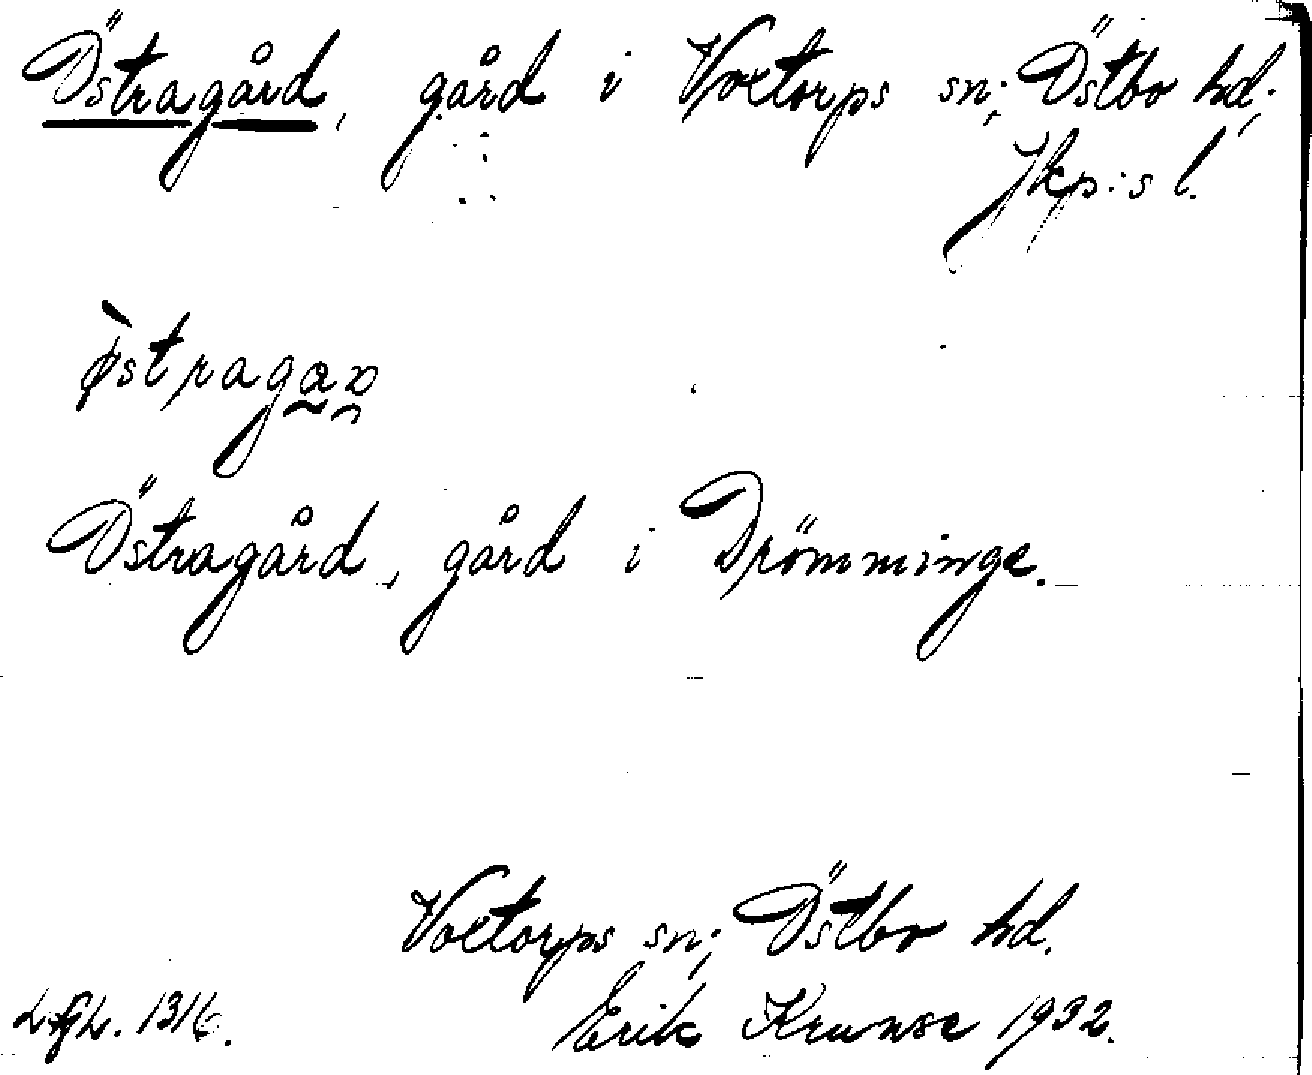 Östragård, gård i Voxtorps sn; Östbo hd;
Jkp:s l.
Östragård, gård i Drömminge.
Voxtorps sn; Östbo hd.
Erik Kruuse 1932.